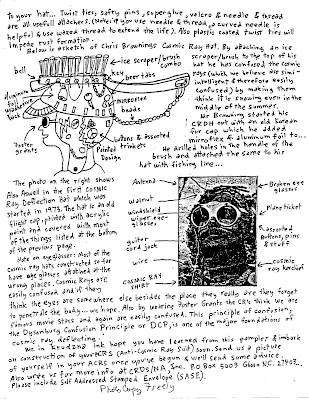 To your hat... Twist ties, safty pins, superglue, velcro & needle & thread
are all usefull attachers. (Note: if you use needle & thread, a curved needle is
helpful & use waxed thread to extend the life). Also plastic coated twist ties will
impede rust formation.
Below is a sketch of Chris Brownings Cosmic Ray Hat. By attaching an ice
scraper/brush to the top of his
hat he has confused the cosmic
rays (which we believe are semi-
intelligent & therefore easily
confused) by making them
think it is snowing even in the
middle of the summer.
Mr Browning started his
CRDH out with an old Korean
fur cap which he added
mirroflex & aluminum foil to...
He drilled holes in the handle of the
brush and attached the same to his
hat with fishing line...
bell
ice scraper/brush
combo
key
beer tabs
aluminum
foil
mirroflex
beads
buttons & assorted
trinkets
Painted
Design
Poster
grants
The photo on the right shows
Also found in the first Cosmic
Ray Deflection Hat which was
started in 1973. The hat is an old
flight cap painted with acrylic
paint and covered with most
of the things listed at the bottom
of the previous page.
Note on eyeglasses: Most of the
cosmic ray hats constructed so far
have eye glasses attatched at the
wrong places. Cosmic Rays are
easily confused and if they
think the eyes are somewhere else besides the place they really are they forget
to penetrate the body... we hope. Also by wearing Poster Grants the CR's think we are
famous movie stars and again are easily confused. This principle of confusion,
the Dysonburg Confusion Principle or DCP, is one of the major foundations of
cosmic ray deflecting.
Antenna
walnut
windshield
wiper eye-
glasses
guitar
cord jack
wire
COSMIC RAY
SHIRT
Broken eye
glasses
Plane ticket
assorted
buttons, pins
& stuff
cosmic
ray kerchief
We in CRDS/NA Inc hope you have learned from this pamplet & imbark
on construction of your ACRS (Anti-Cosmic Ray Suit) soon. Send us a picture
of yourself in your ACRS once you've begun & we'll send some advice.
Also write us for more info at CRDS/NA Inc. PO Box 5003 Gboro N.C. 27403...
Please include Self Addressed Stamped Envelope (SASE).
Photo Copy Freely